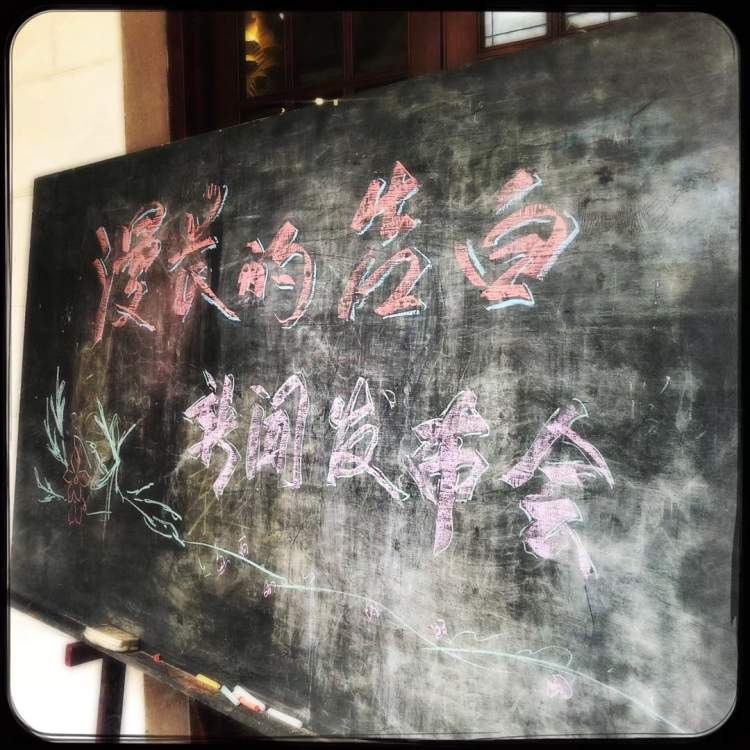 漫长的告白
新闻发布会